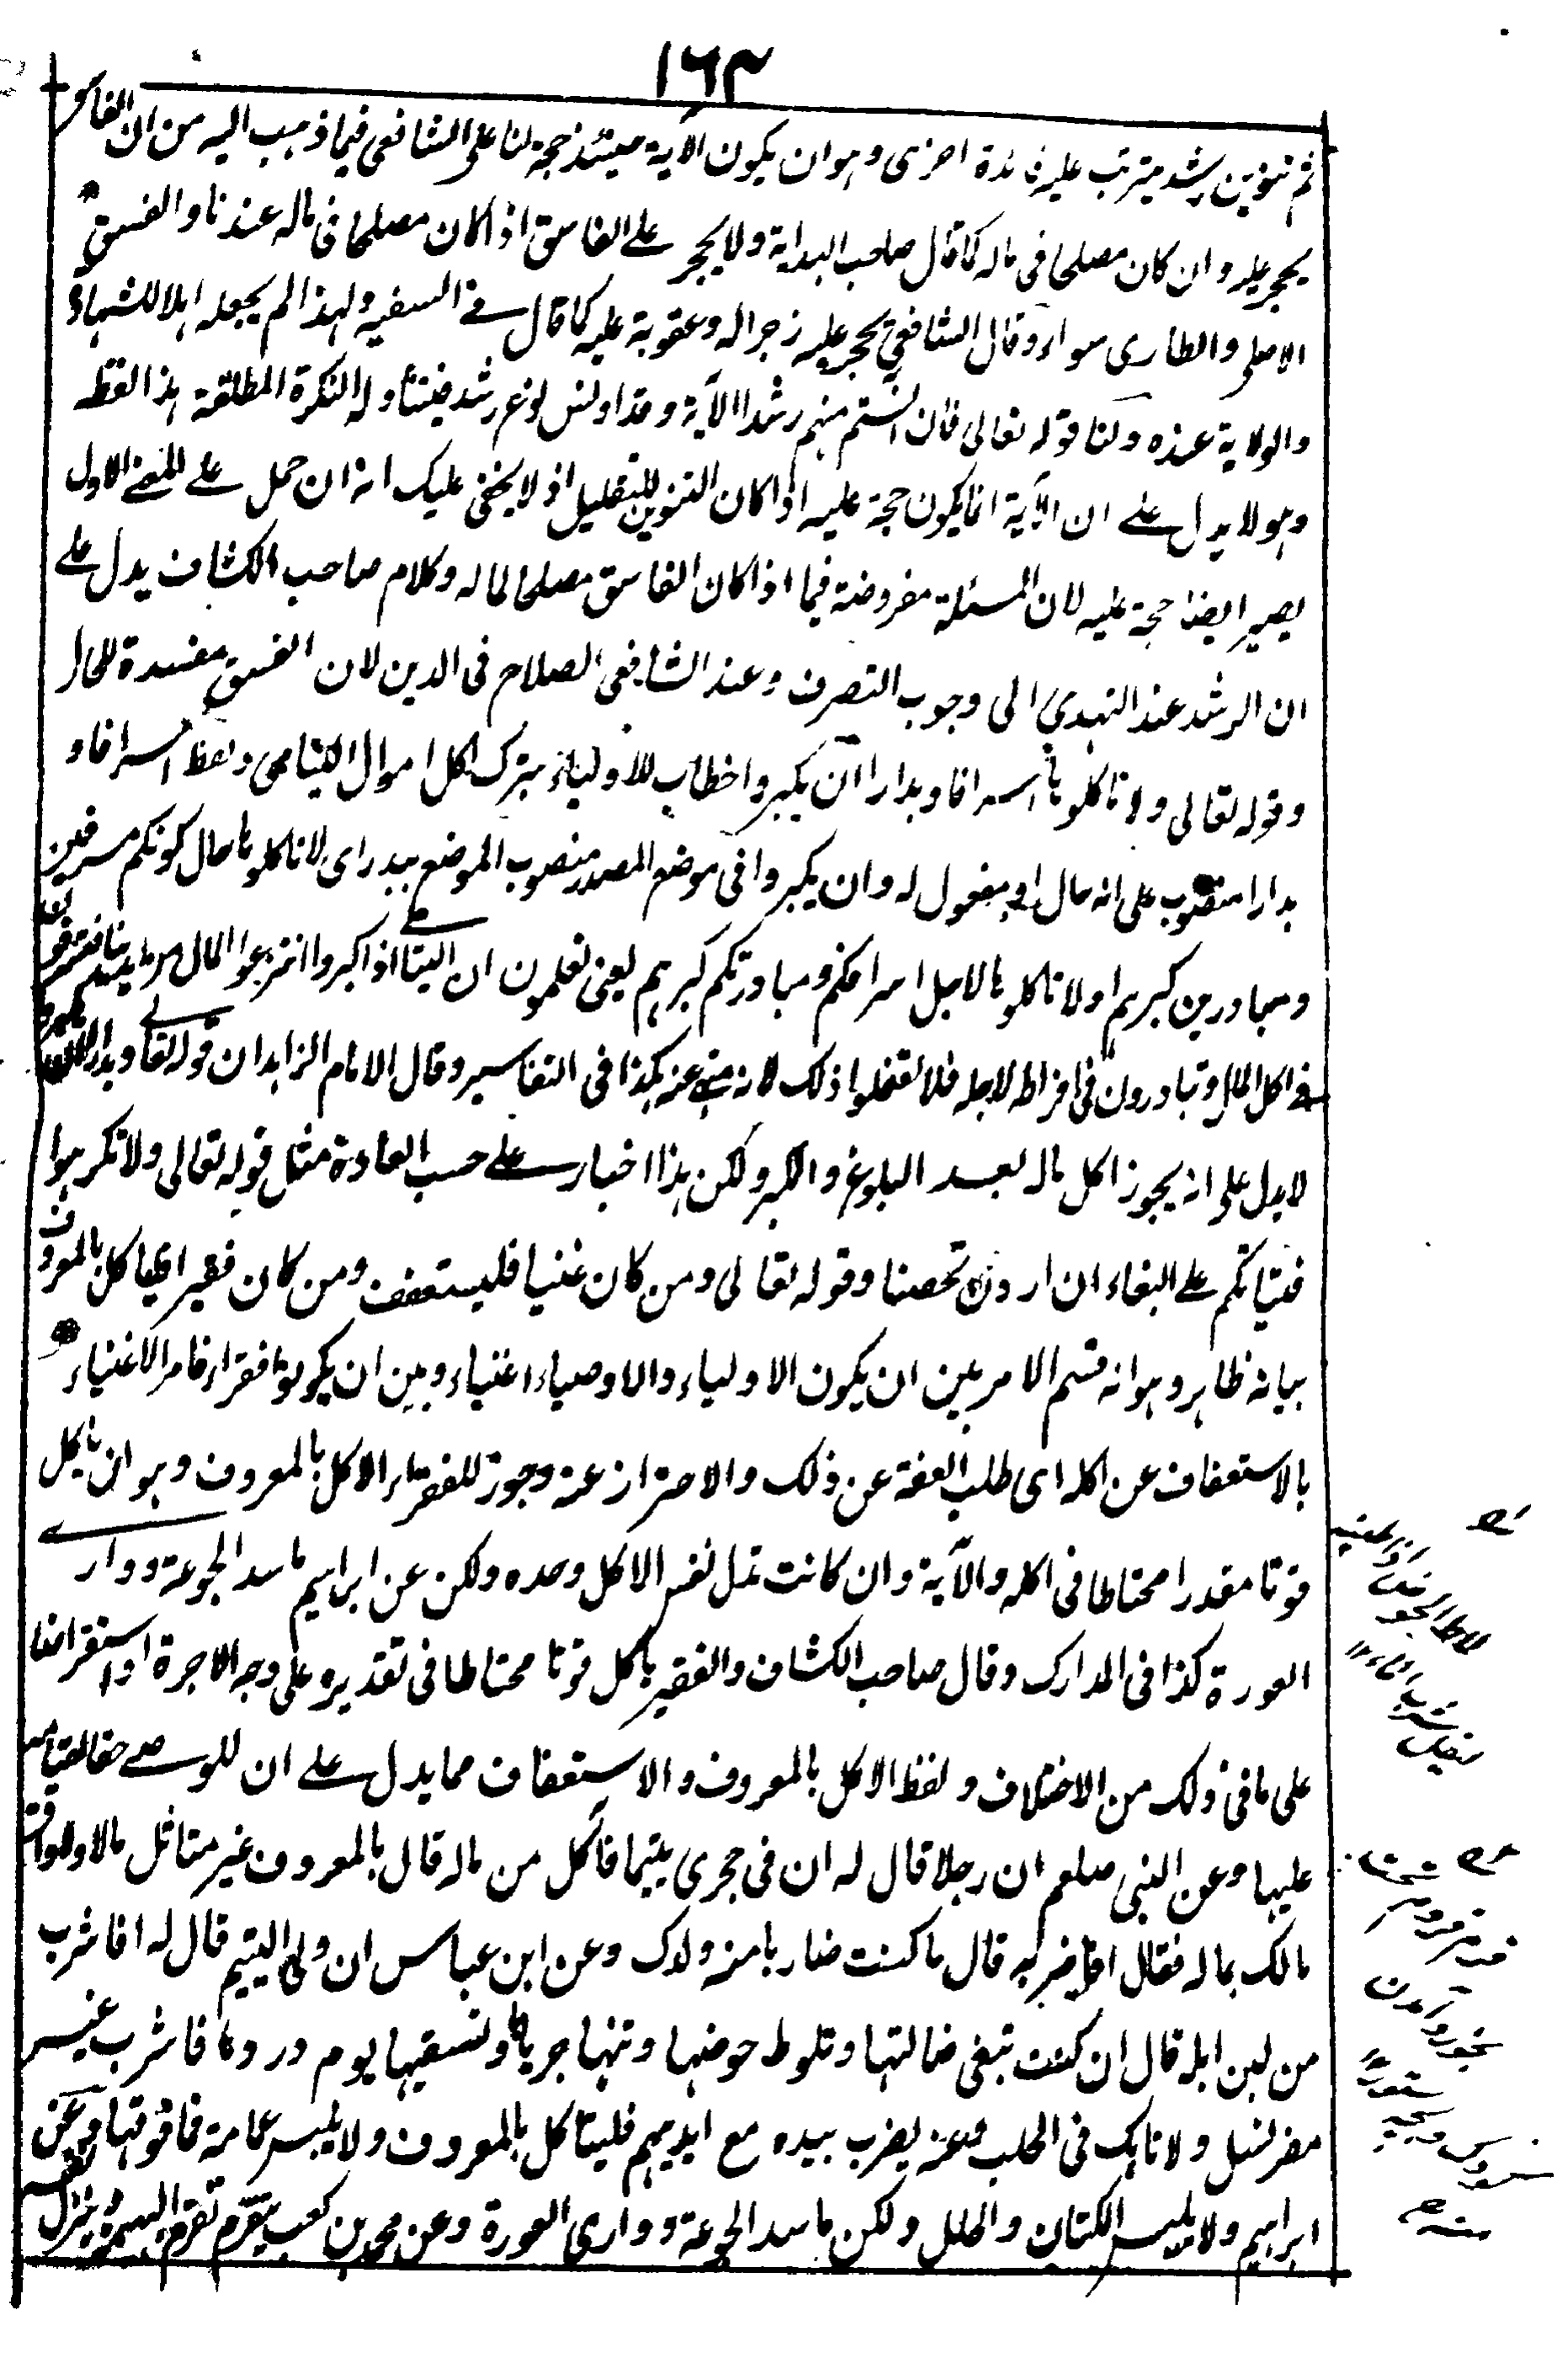 ١٦٣
ثم تنوين رشد يترتب عليه فائدة اخرى وهو ان يكون الآية حينئذ حجة لنا على الشافعى فيما ذهب اليه من ان الفاسق
يحجر عليه وان كان مصلحا فى ماله كما قال صاحب الهداية ولا يحجر على الفاسق اذا كان مصلحا فى ماله عندنا والفسق
الاصلى والطارى سواء وقال الشافعى يحجر عليه زجرا له وعقوبة عليه كما قال فى السفيه ولهذا لم يجعله اهلا للشهادة
والولاية عنده ولنا قوله تعالى فان آنستم منهم رشدا الآية وقد اونس نوع رشد فيتناوله النكرة المطلقة هذا لفظه
وهو لا يدل على ان الآية انما يكون حجة عليه اذا كان التنوين للتقليل اذ لا يخفى عليك انه ان حمل على المعنى الاول
يصير ايضا حجة عليه لان المسئلة مفروضة فيما اذا كان الفاسق مصلحا لماله وكلام صاحب الكشاف يدل على
ان الرشد عند التهدى الى وجوب التصرف وعند الشافعى الصلاح فى الدين لان الفسق مفسدة للمال
وقوله تعالى ولا تاكلوها اسرافا وبدارا ان يكبروا خطاب للاولياء بترك اكل اموال اليتامى ولفظ اسرافا و
بدارا منصوب على انه حال او مفعول له وان يكبروا فى موضع المصدر منصوب الموضع ببدر اى لا تاكلوها حال كونكم مسرفين
ومبادرين كبرهم او لا تاكلوها لاجل اسرافكم ومبادرتكم كبرهم يعنى تعلمون ان اليتامى اذا كبروا انتزعوا المال من ايدينا
فى اكل المال وتبادرون فى افراطه لاجله فلا تفعلوا ذلك لانه منهى عنه هكذا فى التفاسير وقال الامام الزاهد ان قوله تعالى وبدارا
لا يدل على انه يجوز اكل ماله بعد البلوغ والكبر ولكن هذا اخبار على حسب العادة مثل قوله تعالى ولا تكرهوا
فتياتكم على البغاء ان اردن تحصنا وقوله تعالى ومن كان غنيا فليستعفف ومن كان فقيرا فلياكل بالمعروف
بيانه ظاهر وهو انه قسم الامر بين ان يكون الاولياء والاوصياء اغنياء وبين ان يكونوا فقراء فامر الاغنياء
بالاستعفاف عن اكله اى طلب العفة عن ذلك والاحتراز عنه وجوز للفقراء الاكل بالمعروف وهو ان ياكل
قوتا مقدرا محتاطا فى اكله والآية وان كانت تدل نفس الاكل وحده ولكن عن ابراهيم ما سد الجوعة ووارى
العورة كذا فى المدارك وقال صاحب الكشاف والفقير ياكل قوتا محتاطا فى تقديره على وجه الاجرة او استقراضا
على ما فى ذلك من الاختلاف ولفظ الاكل بالمعروف والاستعفاف مما يدل على ان للوصى حقا لقيامه
عليها وعن النبى صلعم ان رجلا قال له ان فى حجرى يتيما فآكل من ماله قال بالمعروف غير متاثل مالا ولا واق
مالك بماله فقال افاضربه قال ما كنت ضاربا منه ولدك وعن ابن عباس ان ولى اليتيم قال له افاشرب
من لبن ابله قال ان كنت تبغى ضالتها وتلوط حوضها وتهنا جرباها وتسقيها يوم ورودها فاشرب غير
مضر بنسل ولا ناهك فى الحلب وعنه يضرب بيده مع ايديهم فلياكل بالمعروف ولا يلبس عمامة فما فوقها وعن
ابراهيم ولا يلبس الكتان والحلل ولكن ما سد الجوعة ووارى العورة وعن محمد بن كعب يتقرم تقرم البهيمة وينزل